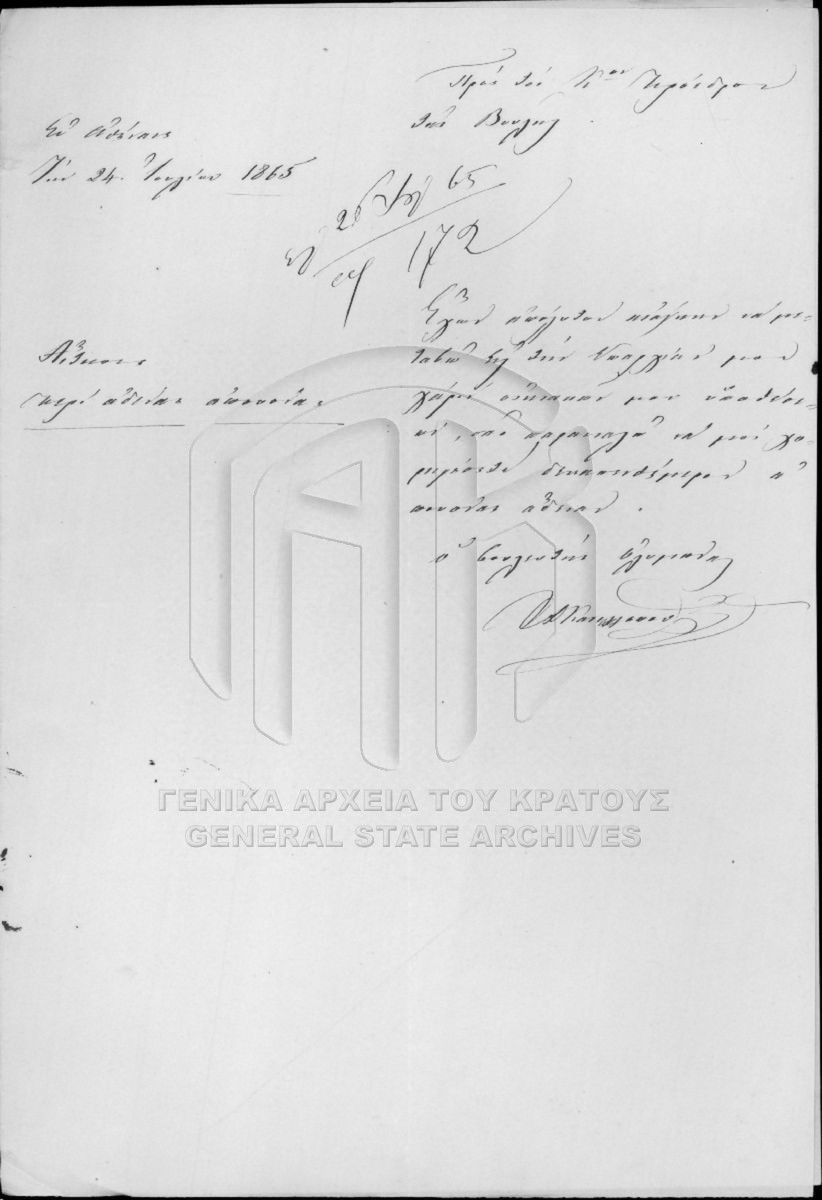 Πρὸς τὸν Κον Πρόεδρον
τῆς Βουλῆς.
Ἐν Ἀθήναις
Τὴν 24 Ἰουλίου 1865
65
172
Αἴτησις
περὶ ἀδείας ἀπουσίας
Ἔχων ἀπόλυτον ἀνάγκην νὰ με-
ταβῶ εἰς τὴν Ἐπαρχίαν μου
χάριν οἰκιακῶν μου ὑποθέσε-
ων, σᾶς παρακαλῶ νὰ μοὶ χο-
ρηγήσετε δεκαπενθήμερον ἀ
πουσίας ἄδειαν.
ὁ βουλευτὴς
ΓΕΝΙΚΑ ΑΡΧΕΙΑ ΤΟΥ ΚΡΑΤΟΥΣ
GENERAL STATE ARCHIVES